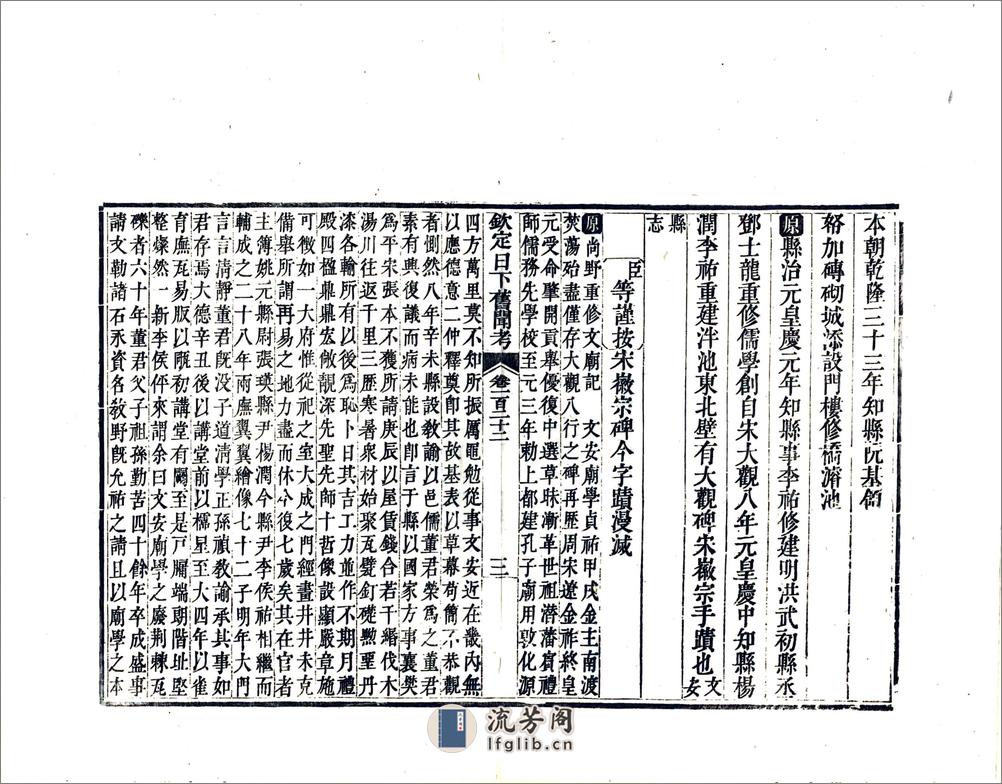 本朝乾隆三十三年知縣阮基領
帑加磚砌城添設門樓修橋濬池
原縣治元皇慶元年知縣事李祐修建明洪武初縣丞
鄧士龍重修儒學創自宋大觀八年元皇慶中知縣楊
潤李祐重建泮池東北壁有大觀碑宋徽宗手蹟也文安
縣志
臣等謹按宋徽宗碑今字蹟漫滅
原尚野重修文廟記 文安廟學貞祐甲戌金主南渡
焚蕩殆盡僅存大觀八行之碑再歷周宋遼金祚終皇
元受命肇開貢舉優復中選草昧漸革世祖潜藩賓禮
師儒務先學校至元三年勅上都建孔子廟用敦化源
欽定日下舊聞考 卷一百二十二 三
四方萬里莫不知所振厲黽勉從事文安近在畿內無
以應德意二仲釋奠卽其故基表以草幕苟簡不恭觀
者惻然八年辛未縣設敎諭以邑儒董君榮爲之董君
素有興復議而病未能也卽言于縣以國家方事襄樊
爲平宋張本不獲所請庚辰以屋賃錢合若干緡伐木
湯川往返千里三歷寒暑衆材始聚瓦甓釘礎黝堊丹
漆各輸所有以後爲恥卜日其吉工力並作不期月禮
殿四楹鼎鼎宏敞靚深先聖先師十哲像設顯嚴章施
可徴如一大府惟從祀之室大成之門經畫井井未克
備舉所謂再易之地力盡而休兮復七歲矣其在官者
主簿姚元縣尉張瑛縣尹楊潤今縣尹李侯祐相繼而
輔成之二十八年兩廡翼翼繪像七十二子明年大門
言言清靜董君旣没子道清學正孫禎敎諭承其事如
君存焉大德辛丑後以講堂前以櫺星至大四年以雀
育廡瓦易版以甎初講堂有闢至是戸牖端覿階址堅
整燦然一新李侯伻來謂余曰文安廟學之廢荆棘瓦
礫者六十年董君父子祖孫勤苦四十餘年卒成盛事
請文勒諸石永資名敎野旣允祐之請且以廟學之本
流芳阁
lfglib.cn